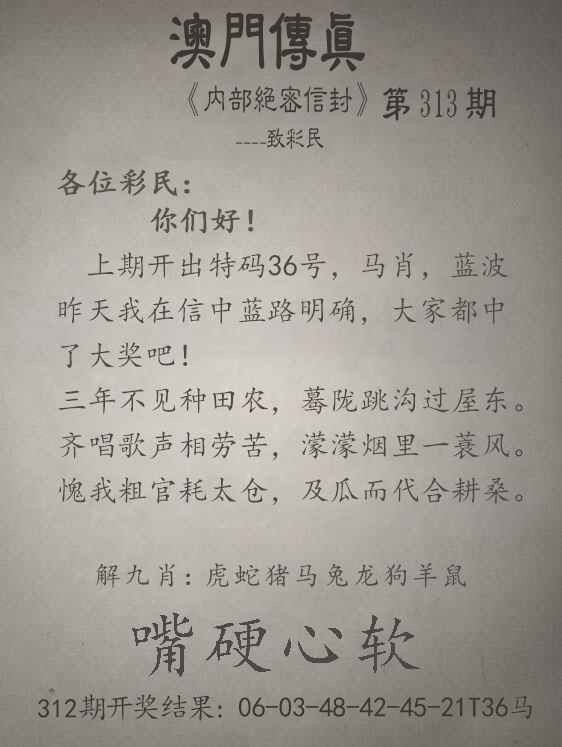 澳門傳眞
《内部絕密信封》第313期
----致彩民
各位彩民：
你们好！
上期开出特码36号，马肖，蓝波
昨天我在信中蓝路明确，大家都中
了大奖吧！
三年不见种田农，蓦陇跳沟过屋东。
齐唱歌声相劳苦，濛濛烟里一蓑风。
愧我粗官耗太仓，及瓜而代合耕桑。
解九肖：虎蛇猪马兔龙狗羊鼠
嘴硬心软
312期开奖结果：06-03-48-42-45-21T36马